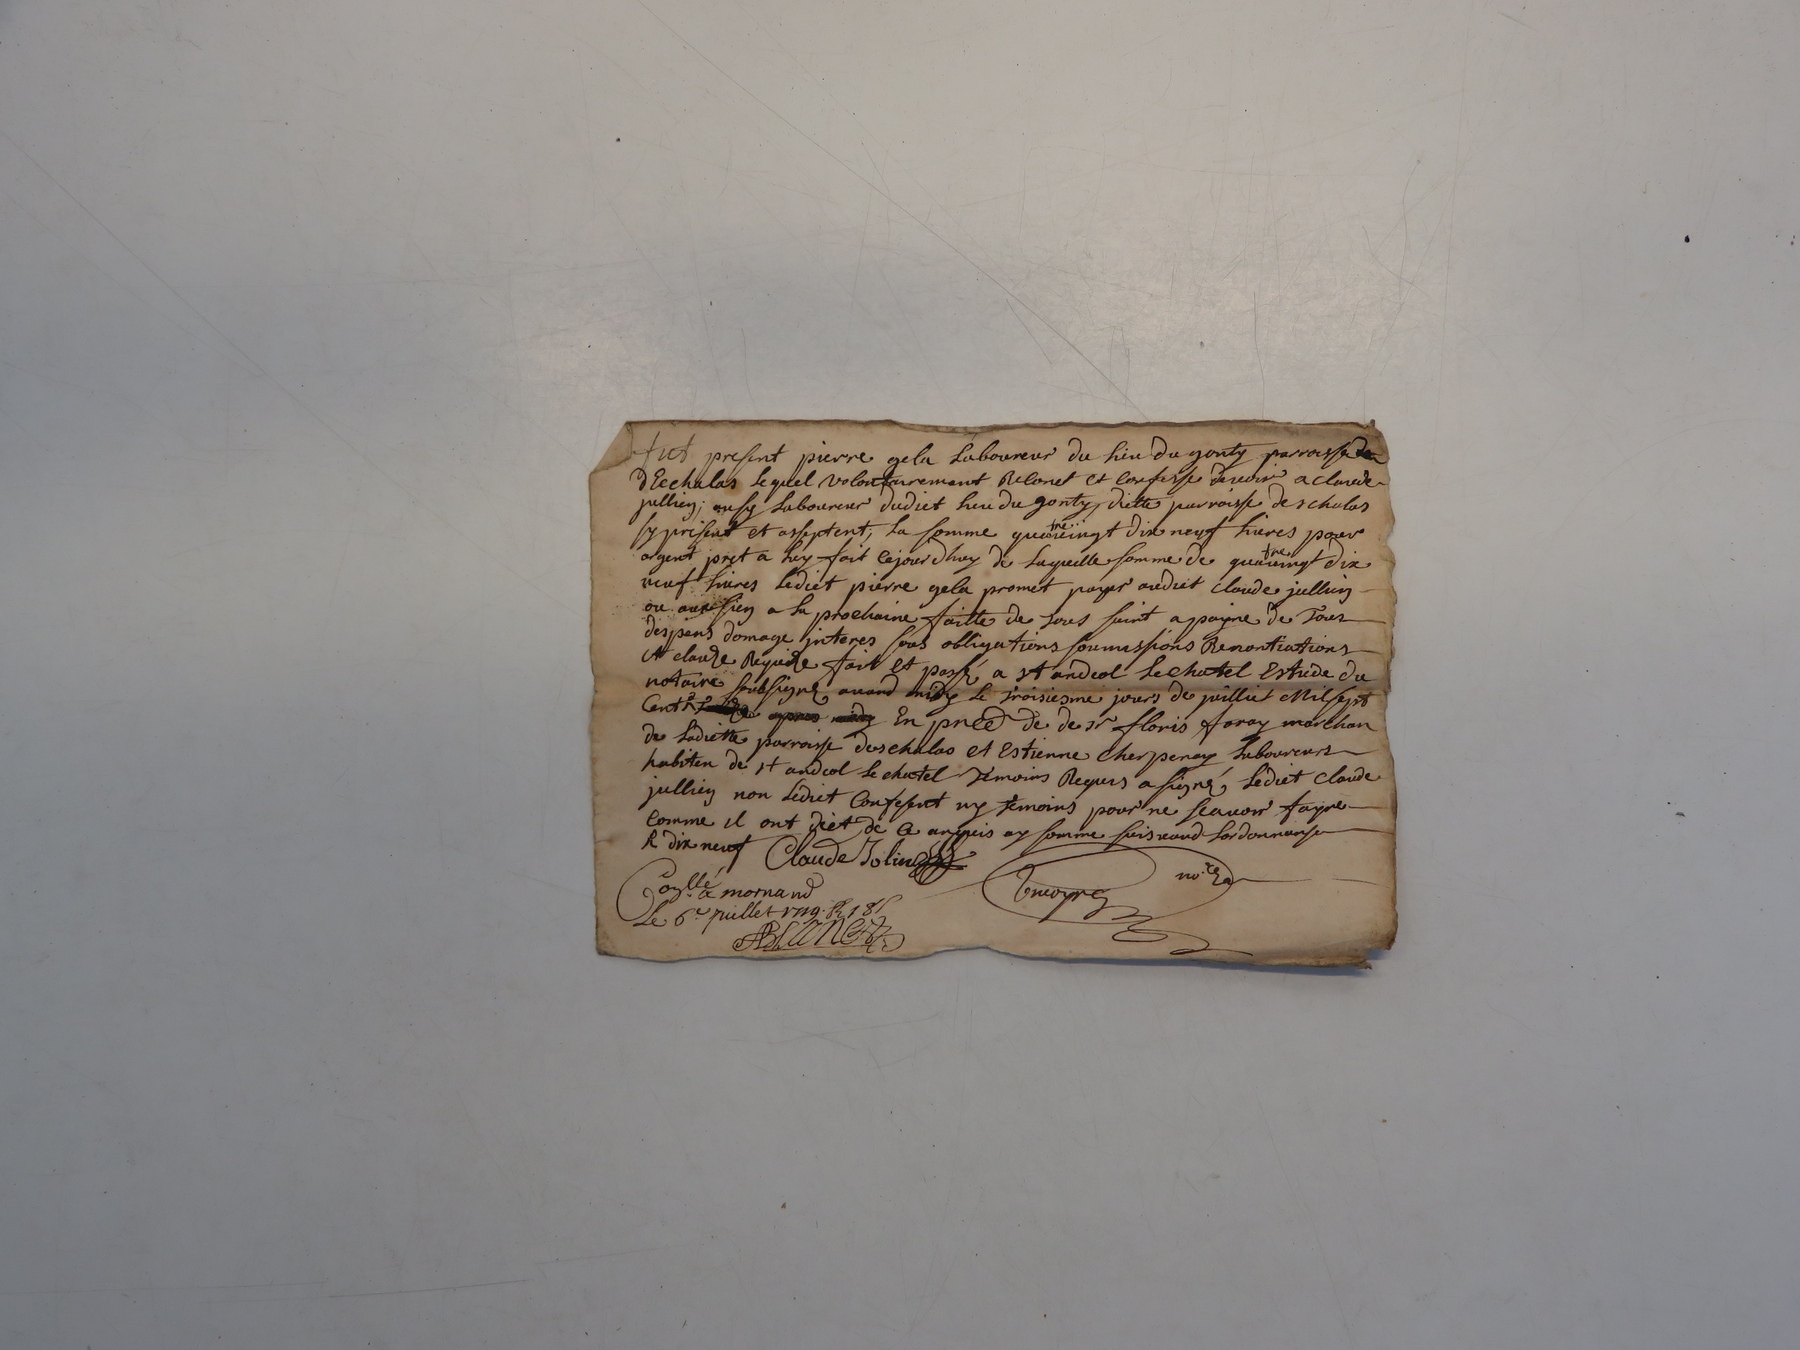 fut present pierre gela Laboureur du lieu du gonty parroisse
dEschalas Lequel volontairement Reconet et Confesse devoir a claude
jullien; ausy Laboureur dudict lieu du gonty, ditte parroisse deschalas
sy present et asseptent, La somme quatrevingt dix neuf livres pour
argent pret a luy fait cejourdhuy de Laquelle somme de quatrevingt dix
neuf livres Ledict pierre gela promet payer audict claude jullien
ou aux sien a La prochaine faitte de Tous saint a payne de Tous
despens domage jnteres sous obligations soumissions Renontiations
et clauze Requize fait et passé a st andeol Lechatel Estude du
notaire soubsigné avand midy Le Troisiesme jours de juilliet Milsept
Cent apres midy En pnce de sr floris faray marchan
de Ladictte parroisse deschalas et Estienne cherpenay Laboureurs
habiten de st andeol Lechatel Temoins Requis a signé, Ledict claude
jullien non Ledict Confesent ny temoins pour ne scavoir fayre
comme il ont dict de ce anquis ay somme suivand Lordonnanse
R dix neuf Claude Jolin
not.re
a mornand
Le 6e juillet 1719